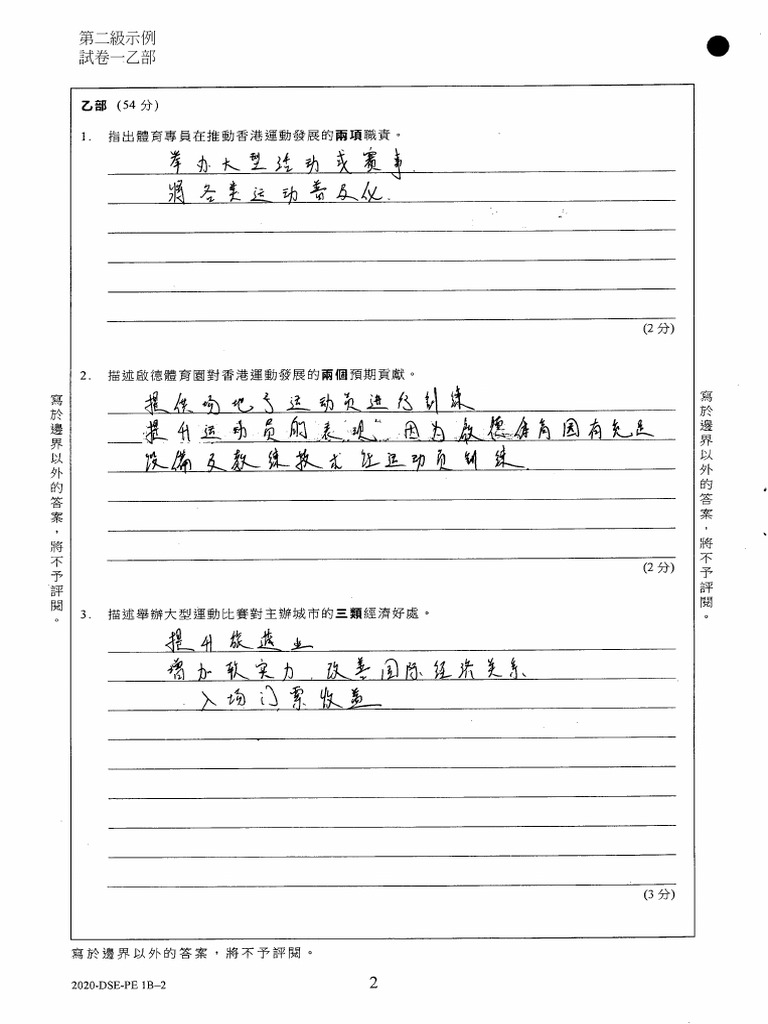 第二級示例
試卷一乙部
乙部 (54 分)
1. 指出體育專員在推動香港運動發展的兩項職責。
举办大型活动或赛事.
將各类运动普及化.
(2 分)
2. 描述啟德體育園對香港運動發展的兩個預期貢獻。
提供场地予运动员进行訓練
提升运动员的表現, 因为啟德体育园有充足
設備及教練技术让运动员訓練.
(2 分)
3. 描述舉辦大型運動比賽對主辦城市的三類經濟好處。
提升旅游业
增加軟实力, 改善国际经济关系
入场门票收益
(3 分)
寫於邊界以外的答案，將不予評閱。
寫於邊界以外的答案，將不予評閱。
寫於邊界以外的答案，將不予評閱。
2020-DSE-PE 1B–2
2